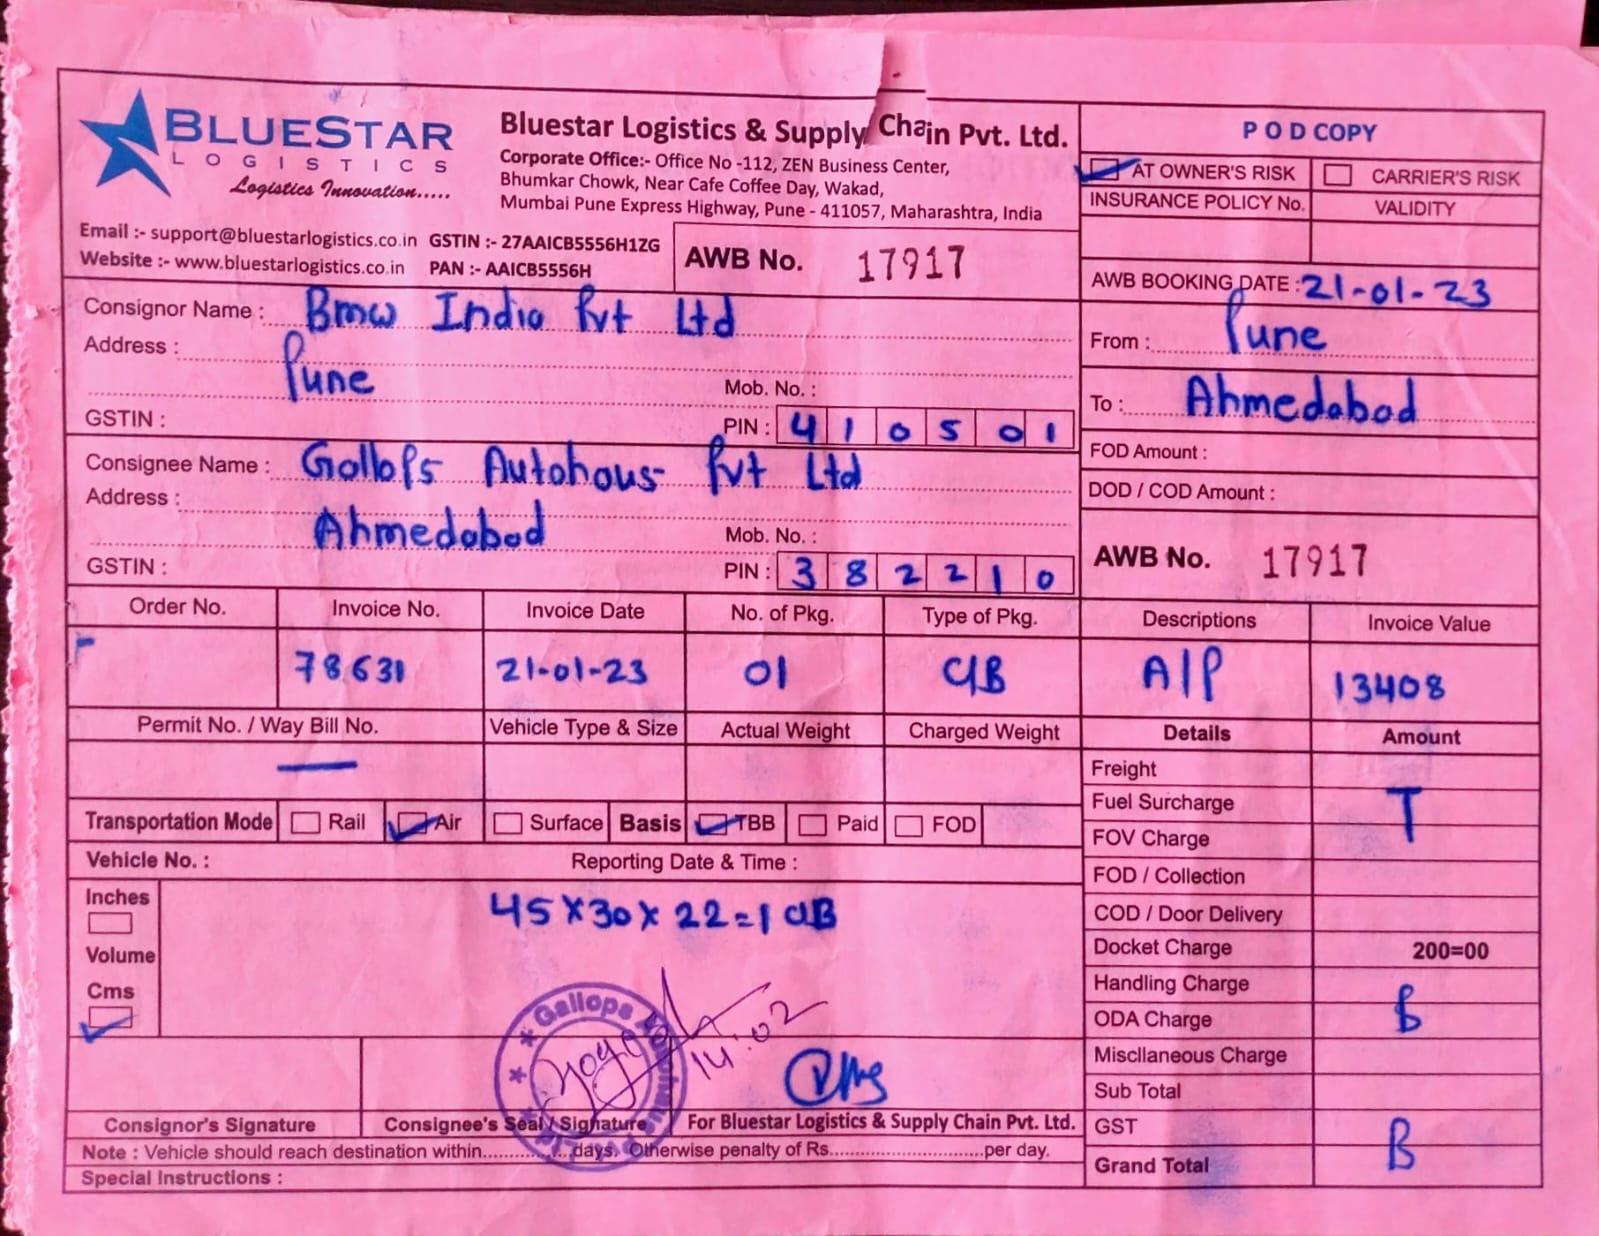 BLUESTAR
LOGISTICS
Logistics Innovation.....
Bluestar Logistics & Supply Chain Pvt. Ltd.
Corporate Office:- Office No -112, ZEN Business Center,
Bhumkar Chowk, Near Cafe Coffee Day, Wakad,
Mumbai Pune Express Highway, Pune - 411057, Maharashtra, India
Email :- support@bluestarlogistics.co.in GSTIN :- 27AAICB5556H1ZG
Website :- www.bluestarlogistics.co.in PAN :- AAICB5556H
AWB No. 17917
P O D COPY
AT OWNER'S RISK CARRIER'S RISK
INSURANCE POLICY No. VALIDITY
AWB BOOKING DATE : 21-01-23
From : Pune
To : Ahmedabad
FOD Amount :
DOD / COD Amount :
AWB No. 17917
Consignor Name : Bmw India Pvt Ltd
Address :
Pune Mob. No. :
GSTIN : PIN : 410501
Consignee Name : Gallops Autohous Pvt Ltd
Address :
Ahmedabad Mob. No. :
GSTIN : PIN : 382210
Order No. Invoice No. Invoice Date No. of Pkg. Type of Pkg. Descriptions Invoice Value
78631 21-01-23 01 C/B A/P 13408
Permit No. / Way Bill No. Vehicle Type & Size Actual Weight Charged Weight
Transportation Mode Rail Air Surface Basis TBB Paid FOD
Vehicle No. : Reporting Date & Time :
Inches
Volume
Cms
45 x 30 x 22 = 1 C/B
Details Amount
Freight
Fuel Surcharge T
FOV Charge
FOD / Collection
COD / Door Delivery
Docket Charge 200=00
Handling Charge
ODA Charge B
Miscllaneous Charge
Sub Total
GST
Grand Total B
Gallops
14:02
Consignor's Signature Consignee's Seal / Signature For Bluestar Logistics & Supply Chain Pvt. Ltd.
Note : Vehicle should reach destination within..............days. Otherwise penalty of Rs..............................per day.
Special Instructions :